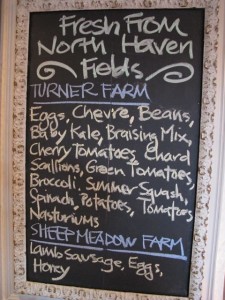 Fresh From
North Haven
Fields
TURNER FARM
Eggs, Chevre, Beans,
Baby Kale, Braising Mix,
Cherry Tomatoes, Chard
Scallions, Green Tomatoes,
Broccoli, Summer Squash,
Spinach, Potatoes, Tomatoes
Nasturtiums
SHEEP MEADOW FARM
Lamb Sausage, Eggs,
Honey